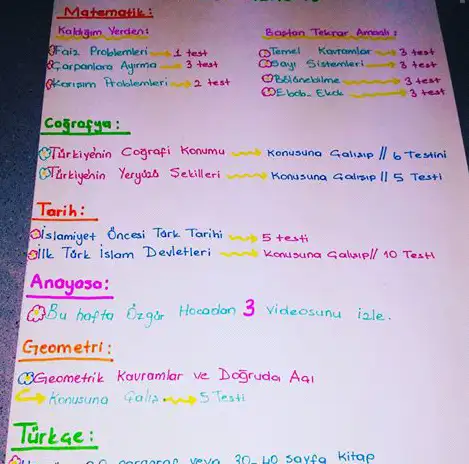 Matematik:
Kaldığım Yerden:
Faiz Problemleri 1 test
Çarpanlara Ayırma 3 test
Karışım Problemleri 2 test
Baştan Tekrar Amaçlı:
Temel Kavramlar 3 test
Sayı Sistemleri 3 test
Bölünebilme 3 test
Ebob-Ekok 3 test
Coğrafya:
Türkiye'nin Coğrafi Konumu Konusuna Çalışıp // 6 Testini
Türkiye'nin Yeryüzü Şekilleri Konusuna Çalışıp // 5 Testi
Tarih:
İslamiyet Öncesi Türk Tarihi 5 testi
İlk Türk İslam Devletleri Konusuna Çalışıp // 10 Testi
Anayasa:
Bu hafta Özgür Hocadan 3 videosunu izle.
Geometri:
Geometrik Kavramlar ve Doğruda Açı
Konusuna Çalış 5 Testi
Türkçe:
paragraf veya 30-40 sayfa kitap